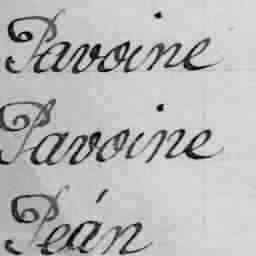 Pavoine
Pavoine
Peán